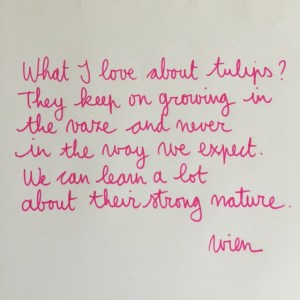 What I love about tulips?
They keep on growing in
the vaze and never
in the way we expect.
We can learn a lot
about their strong nature.
wien